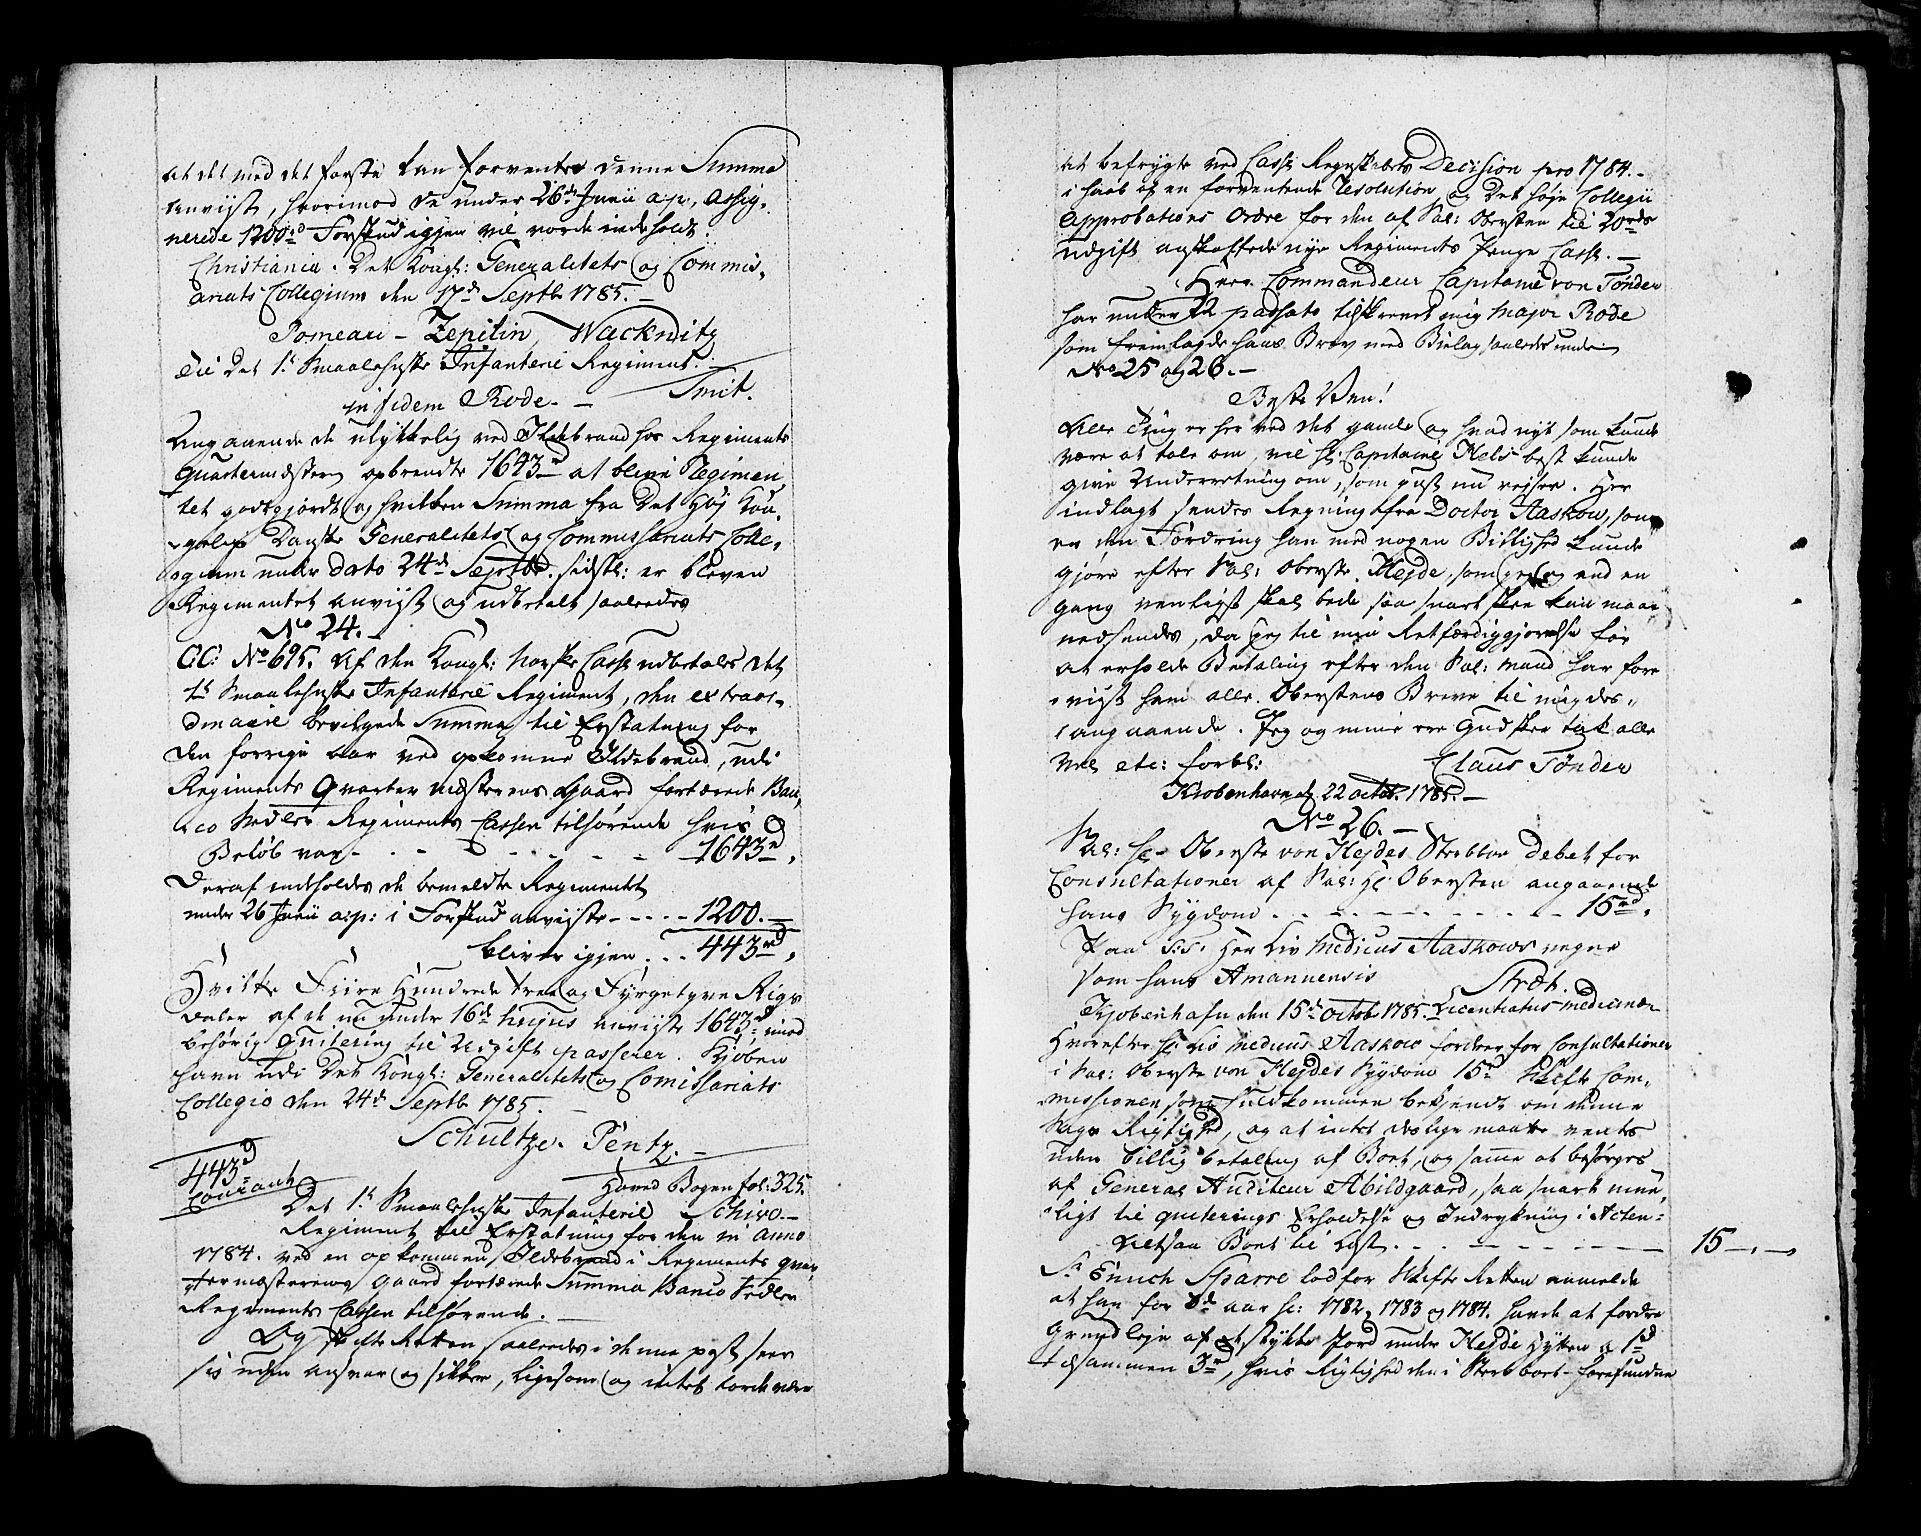 at det med det første kan forventes denne Summa
anviist, hvorimod de under 26de Junii a:p: assig-
nerede 1200rd Forskud igjen vil vorde indeholdt.
Christiania. Det Kongl: Generalitets og Commis-
ariats Collegium den 17de Septbr 1785.
Pomeau - Zepelin, Wackenitz
Til Det 1ste Smaalehnske Infanterie Regiment.
Smit.
in fidem Rode.
Angaaende de ulykkelig ved Ildebrand hos Regiments
Quartermesteren opbrendte 1643rd at blive Regimen
tet godtgjordt og hvilken Summa fra Det Høy Kon-
gelig Danske Generalitets og Commissariats Colle-
gium under dato 24de Septbr. sidstl: er bleven
Regimentet anviist og udbetalt saaledes
No 24.
C:C: No 695. Af den Kongl: Norske Casse udbetales det
1ste Smaalehnske Infanterie Regiment, den extraor-
dinaire bevilgede Summa til Erstatning for
den forrige Aar ved opkomne Ildebrand, udi
Regiments Quarter Mesterens Gaard fortærede Ban-
co Sedler Regiments Cassen tilhørende hvis
Beløb var - - - 1643rd,
Deraf indholdes de bemeldte Regimentet
under 26 Junii a:p: i Forskud anviiste - - - 1200.
bliver igjen . . . 443rd,
Hvilke Fiire Hundrede tree og Fyrgetyve Rigs
daler af de nu under 16de hujus anviiste 1643rd imod
behørig Qvitering til Udgift passerer. Kjøben
havn udi Det Kongl: Generalitets og Comissariats
Collegio den 24de Septbr 1785.
Schultze. Pentz.
443rd
Courant
Hoved Bogen fol: 325.
Det 1ste Smaalehnske Infanterie Schivo-
Regiment til Erstatning for den in Anno
1784. ved en opkommen Ildebrand i Regiments Quar-
termesterens Gaard fortærede Summa Banco Sedler
Regiments Cassen tilhørende.
Og skifte Retten saaledes i denne post seer
sig uden ansvar og sikker, ligesom og intet torde være
at befrygte ved Casse Regnskabets Decision pro 1784.
i haab af en forventende Resolution og Det høje Collegii
Approbations Ordre for den af Sal: Obersten til 20rd
udgift anskaffede nye Regiments Penge Casse.
Herr Commandeur Capitaine von Tønder
har under 22 passato tilskrevet mig Major Rode
som fremlagde hans Brev med Bielag saaledes under
No 25 og 26.
Beste Ven!
Alle Ting er her ved det gamle og hvad nyt som kunde
være at tale om, vil Hr: Capitaine Hels best kunde
give Underretning om, som just nu rejser. Her
indlagt sendes Regning fra Doctor Aaskow, som
er den Fordring han med nogen Billighed kunde
gjøre efter Sal: Oberste Hejde, som jeg og end en
gang venligst skal bede saa snart skee kan maae
nedsendes, da jeg til min Retfærdiggjørelse for
at erholde Betaling efter den Sal: Mand har fore
viist ham alle Oberstens Breve til mig des-
angaaende. Jeg og mine ere Gud skee tak alle
Vel etc: forbl: Claus Tønder
Kiøbenhavn d. 22 octob. 1785.
No 26.
Sal: Hr Oberste von Hejdes Sterbboe debet for
Consultationer af Sal: Hr: Obersten angaaende
hans Sygdom . . . - - - 15rd,
Paa S:T: Her Liv Medicus Aaskows vegne
som hans Amanuensis Stræt.
Kjøbenhafn den 15de octob 1785. Licentiatus medicinæ
Hvorefter Hr Liv Medicus Aaskow fordrer for Consultationer
i Sal: Oberste von Hejdes Sygdom 15rd Skifte Com-
missionen som fuldkommen bekjendt om denne
Sags Rigtighed, og at intet deslige maatte ventes
uden billig betaling af Boet, og samme at besørges
af General Auditeur Abildgaard, saa snart mue-
ligt til qviterings Erholdelse og Indrykning i Acten.
Altsaa Boet til Last . . . - - - 15 - , -
Sr Enuch Sparre lod for Skifte Retten anmelde
at han for 3de aar sc: 1782, 1783 og 1784. havde at fordre
Grundleje af et stykke Jord under Hejde Hytten a 1rd
tilsammen 3rd, hvis Rigtighed den i Sterbboet forefundne